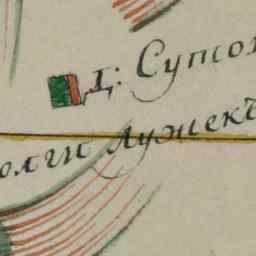 Д: Суто
олги Лужекъ